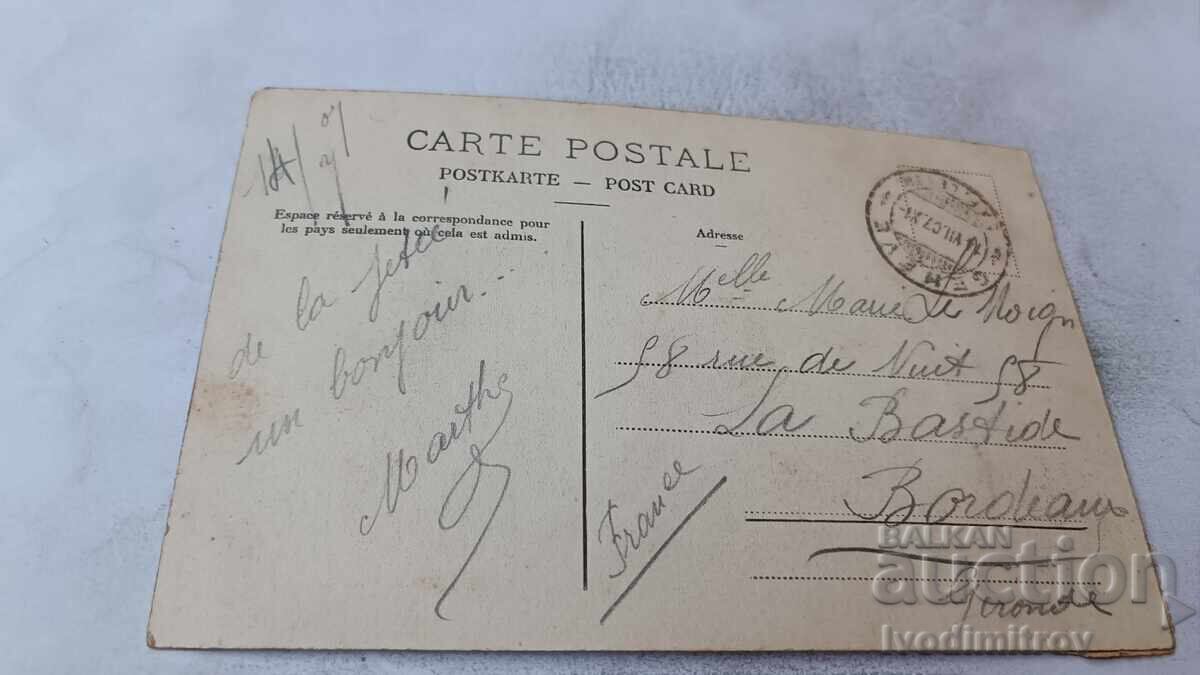 14/7/07
CARTE POSTALE
POSTKARTE — POST CARD
Espace réservé à la correspondance pour
les pays seulement où cela est admis.
Adresse
GENÈVE
VII.07
de la jetée
un bonjour...
Marthe
Melle Marie Le Moign
58 rue de Nuit 58
La Bastide
Bordeaux
Gironde
France
BALKAN
auction
Ivodimitrov